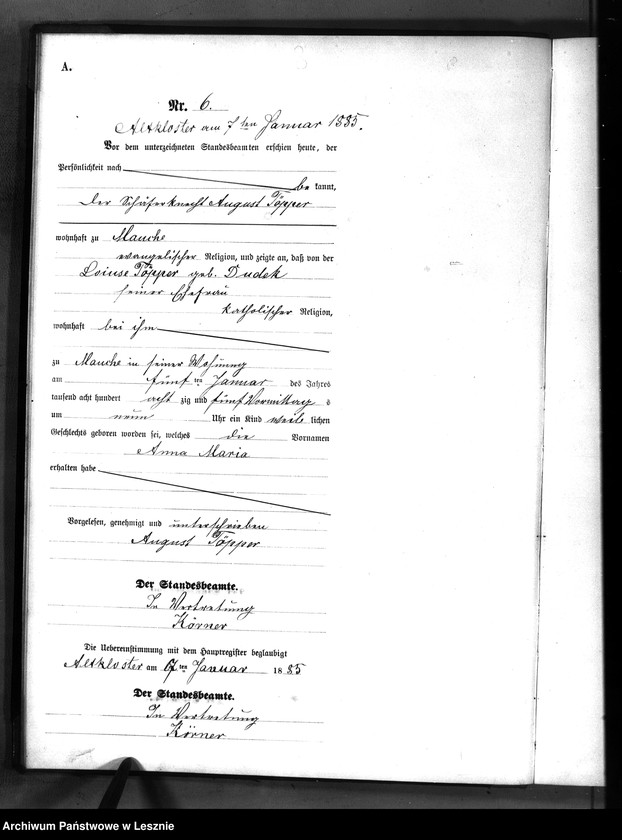 A.
Nr. 6.
Altkloster am 7ten Januar 1885.
Vor dem unterzeichneten Standesbeamten erschien heute, der
Persönlichkeit nach
be kannt,
der Schäferknecht August Töpper
wohnhaft zu Mauche
evangelischer Religion, und zeigte an, daß von der
Loiuse Töpper geb. Dudek
seiner Ehefrau
katholischer Religion,
wohnhaft bei ihm
zu Mauche in seiner Wohnung
am fünf ten Januar des Jahres
tausend acht hundert acht zig und fünf Vormittag s
um neun Uhr ein Kind weib lichen
Geschlechts geboren worden sei, welches die Vornamen
Anna Maria
erhalten habe
Vorgelesen, genehmigt und unterschrieben
August Töpper
Der Standesbeamte.
In Vertretung
Körner
Die Uebereinstimmung mit dem Hauptregister beglaubigt
Altkloster am 7ten Januar 1885
Der Standesbeamte.
In Vertretung
Körner
Archiwum Państwowe w Lesznie